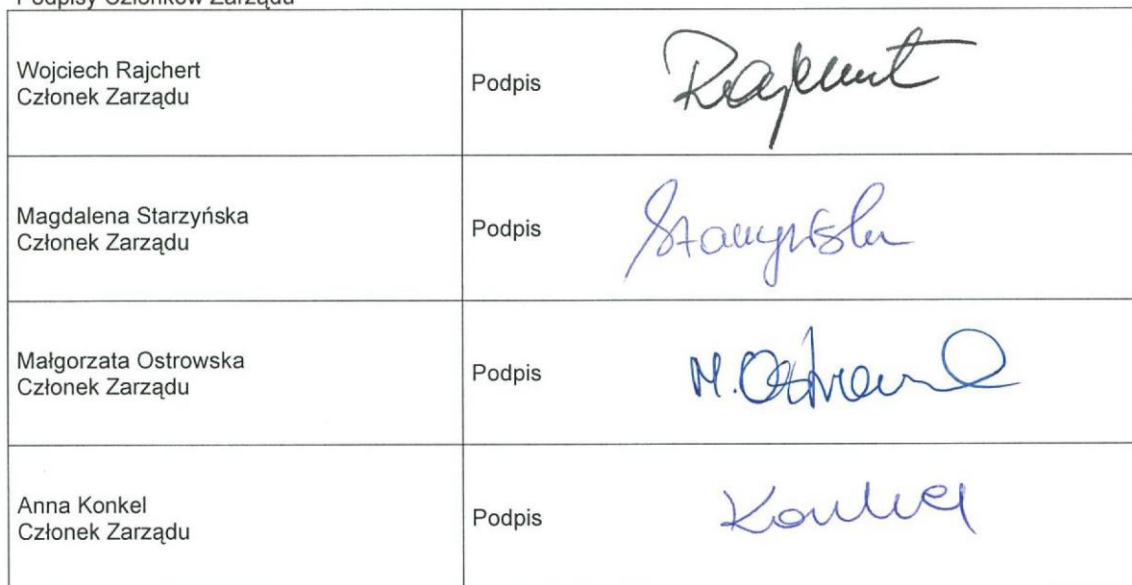 Podpisy Członków Zarządu
Wojciech Rajchert
Członek Zarządu
Podpis
Rajchert
Magdalena Starzyńska
Członek Zarządu
Podpis
Starzyńska
Małgorzata Ostrowska
Członek Zarządu
Podpis
M. Ostrowska
Anna Konkel
Członek Zarządu
Podpis
Konkel